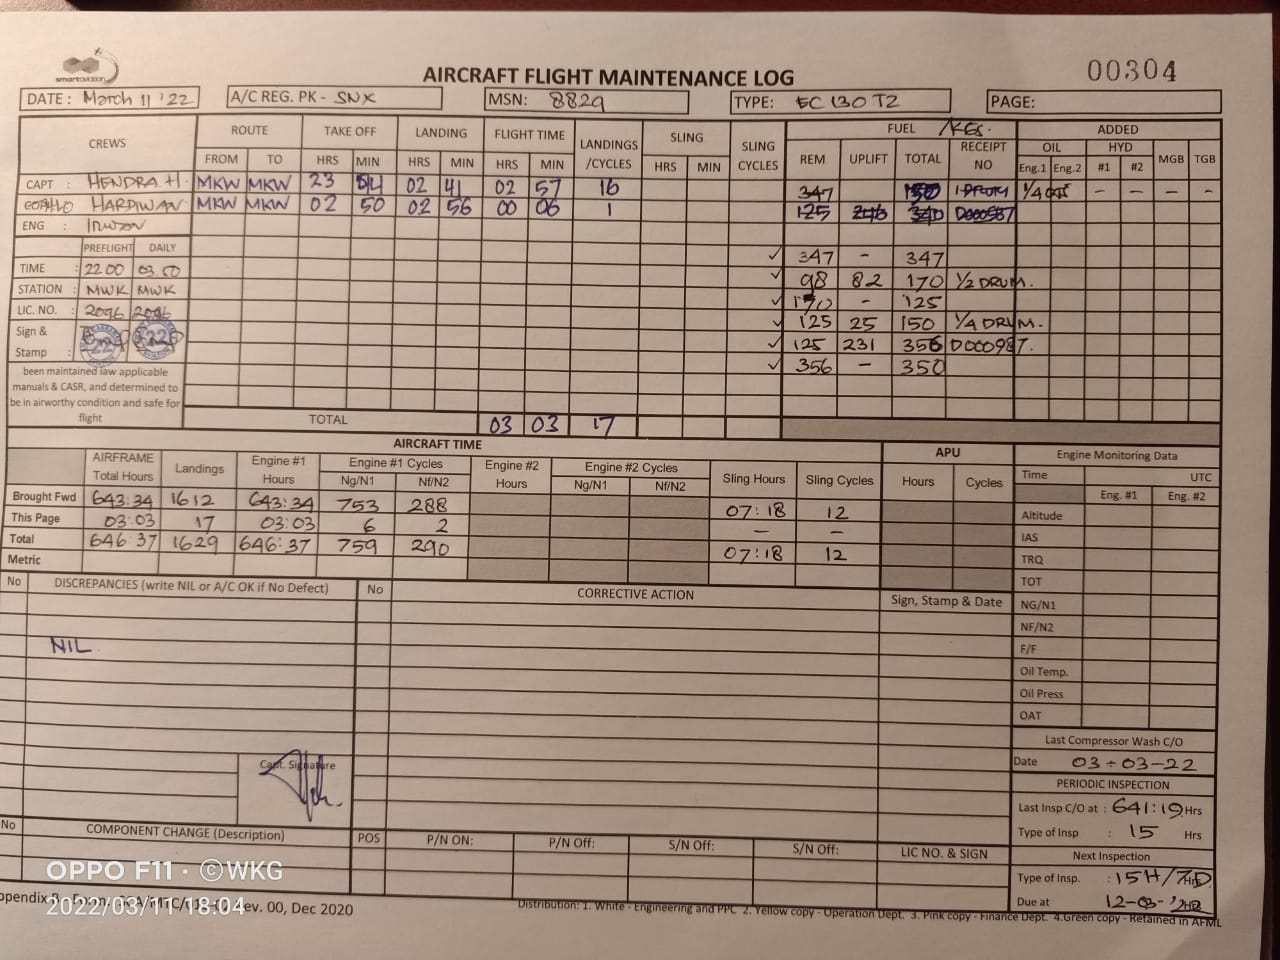 smartaviation
AIRCRAFT FLIGHT MAINTENANCE LOG
00304
DATE: March 11 '22 A/C REG. PK - SNX MSN: 8829 TYPE: EC 130 T2 PAGE:
CREWS ROUTE TAKE OFF LANDING FLIGHT TIME LANDINGS /CYCLES SLING SLING CYCLES FUEL /KGS. ADDED
FROM TO HRS MIN HRS MIN HRS MIN HRS MIN REM UPLIFT TOTAL RECEIPT NO OIL HYD MGB TGB
Eng.1 Eng.2 #1 #2
CAPT : HENDRA.H. MKW MKW 23 02 41 02 57 16 347 1 DRUM 1/4 - - - -
HARDIWAN MKW MKW 02 50 02 56 00 06 1 125
ENG : Irwan
PREFLIGHT DAILY
✓ 347 - 347
TIME : 22.00 03.50 ✓ 98 82 170 1/2 DRUM.
STATION : MWK MWK ✓ 170 - 125
LIC. NO. : 2096 2096 ✓ 125 25 150 1/4 DRUM.
Sign & ✓ 125 231 356
Stamp : ✓ 356 - 350
been maintained iaw applicable
manuals & CASR, and determined to
be in airworthy condition and safe for
flight
TOTAL 03 03 17
AIRCRAFT TIME
AIRFRAME Total Hours Landings Engine #1 Hours Engine #1 Cycles Engine #2 Hours Engine #2 Cycles Sling Hours Sling Cycles APU Engine Monitoring Data
Ng/N1 Nf/N2 Ng/N1 Nf/N2 Hours Cycles Time UTC
Brought Fwd 643:34 1612 643:34 753 288 07:18 12 Eng. #1 Eng. #2
This Page 03:03 17 03:03 6 2 — — Altitude
Total 646:37 1629 646:37 759 290 07:18 12 IAS
Metric TRQ
TOT
No DISCREPANCIES (write NIL or A/C OK if No Defect) No CORRECTIVE ACTION Sign, Stamp & Date NG/N1
NF/N2
NIL F/F
Oil Temp.
Oil Press
OAT
Last Compressor Wash C/O
Capt. Signature Date 03-03-22
PERIODIC INSPECTION
Last Insp C/O at : 641:19 Hrs
Type of Insp : 15 Hrs
No COMPONENT CHANGE (Description) POS P/N ON: P/N Off: S/N Off: S/N Off: LIC NO. & SIGN Next Inspection
Type of Insp. : 15H/7D Hrs
Due at 12-03-
Rev. 00, Dec 2020
Distribution: 1. White - Engineering and PPC 2. Yellow copy - Operation Dept. 3. Pink copy - Finance Dept. 4.Green copy - Retained in AFML
OPPO F11 · ©WKG
2022/03/11 18:04